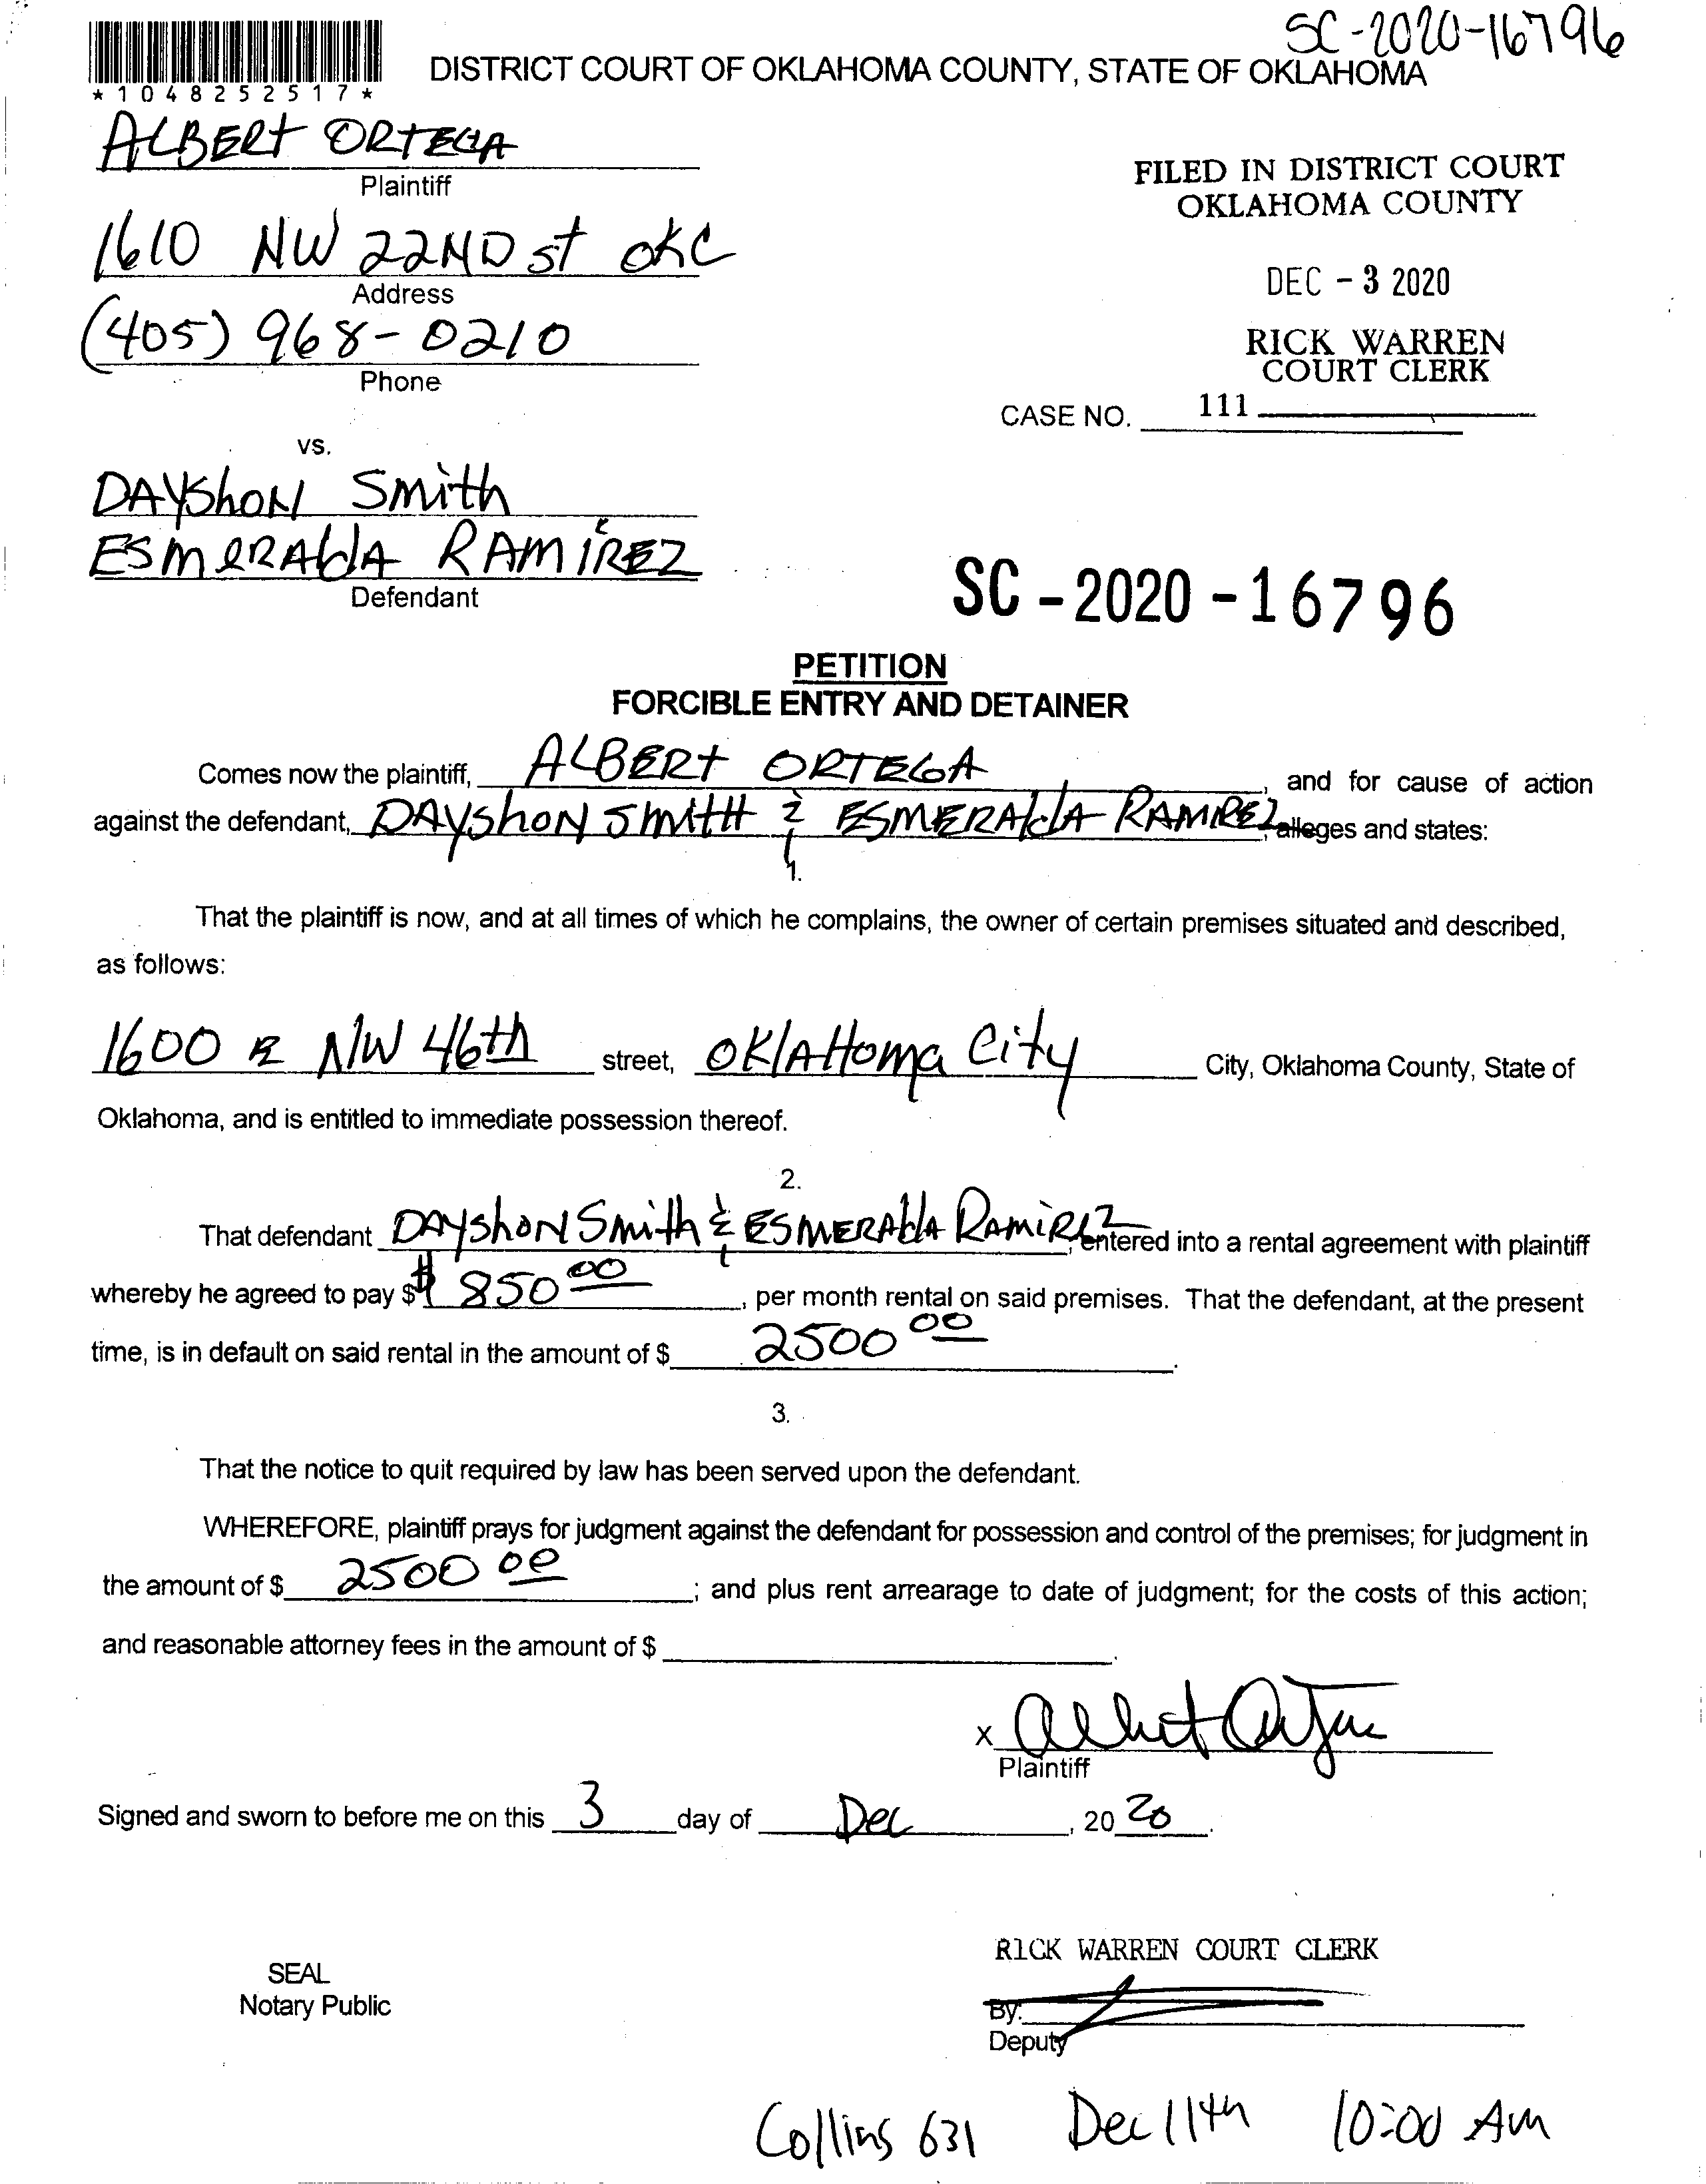 SC-2020-16796
*1048252517*
DISTRICT COURT OF OKLAHOMA COUNTY, STATE OF OKLAHOMA
ALBERT ORTEGA
Plaintiff
FILED IN DISTRICT COURT
OKLAHOMA COUNTY
1610 NW 22ND St OKC
Address
DEC - 3 2020
(405) 968-0210
Phone
RICK WARREN
COURT CLERK
CASE NO. 111
vs.
DAYShON Smith
ESmERAldA RAMIREZ
Defendant
SC-2020-16796
PETITION
FORCIBLE ENTRY AND DETAINER
Comes now the plaintiff, ALBERt ORTEGA, and for cause of action
against the defendant, DAYShON SmitH & ESMERAldA RAMIREZ, alleges and states:
1.
That the plaintiff is now, and at all times of which he complains, the owner of certain premises situated and described,
as follows:
1600 R NW 46th street, OKlAHoma City City, Oklahoma County, State of
Oklahoma, and is entitled to immediate possession thereof.
2.
That defendant DAYShON Smith & ESMERAldA RAMIREZ, entered into a rental agreement with plaintiff
whereby he agreed to pay $ $ 850 00, per month rental on said premises. That the defendant, at the present
time, is in default on said rental in the amount of $ 2500 00.
3.
That the notice to quit required by law has been served upon the defendant.
WHEREFORE, plaintiff prays for judgment against the defendant for possession and control of the premises; for judgment in
the amount of $ 2500 00; and plus rent arrearage to date of judgment; for the costs of this action;
and reasonable attorney fees in the amount of $.
X Albert Ortega
Plaintiff
Signed and sworn to before me on this 3 day of Dec, 20 20.
RICK WARREN COURT CLERK
SEAL
Notary Public
By:
Deputy
Collins 631 Dec 11th 10:00 AM